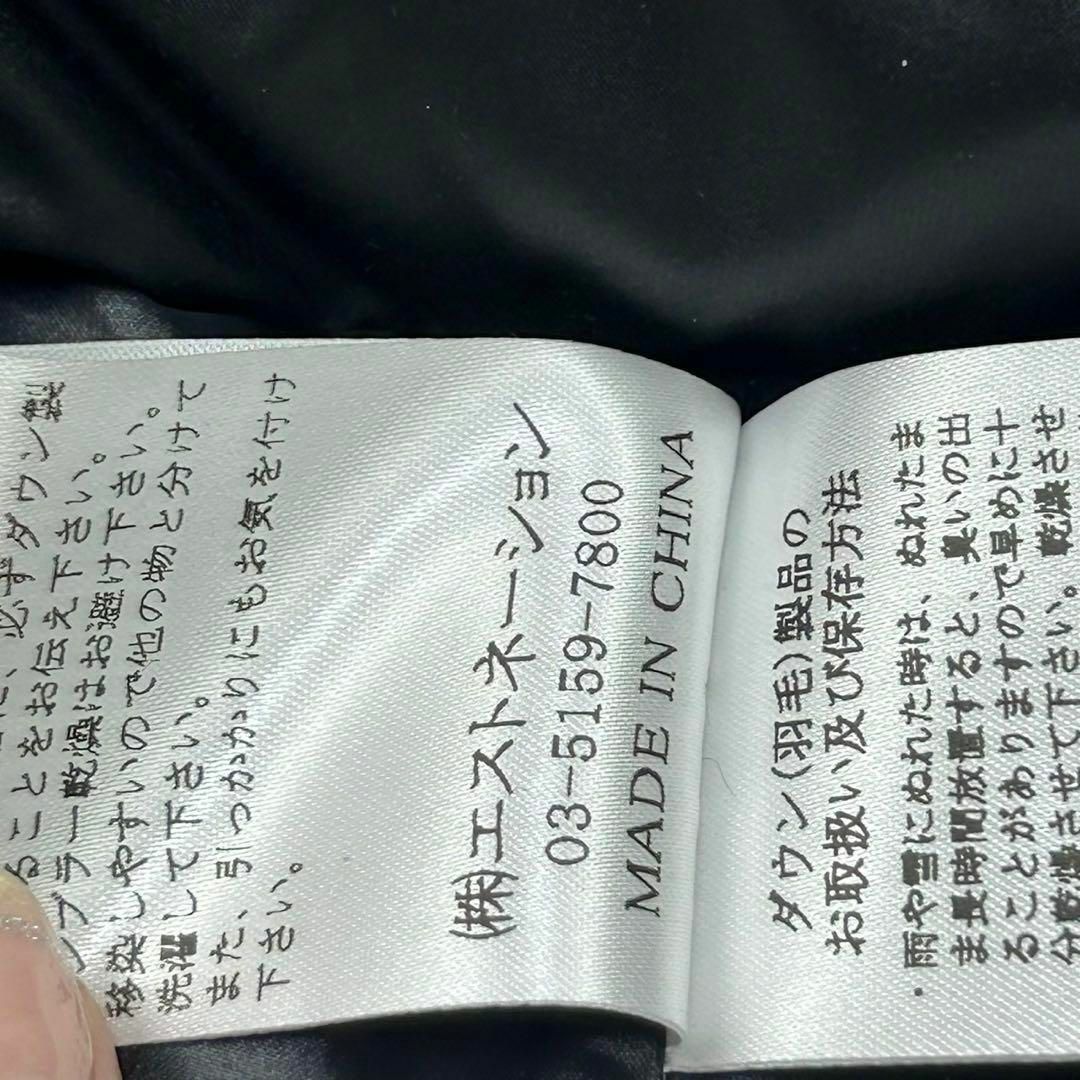 必ずダウン製
ることをお伝え下さい。
ンブラー乾燥はお避け下さい。
移染しやすいので他の物と分けて
洗濯して下さい。
また、引っかかりにもお気を付け
下さい。
(株)エストネーション
03-5159-7800
MADE IN CHINA
ダウン(羽毛)製品の
お取扱い及び保存方法
・雨や雪にぬれた時は、ぬれたま
ま長時間放置すると、臭いの出
ることがありますので早めに十
分乾燥させて下さい。乾燥させ